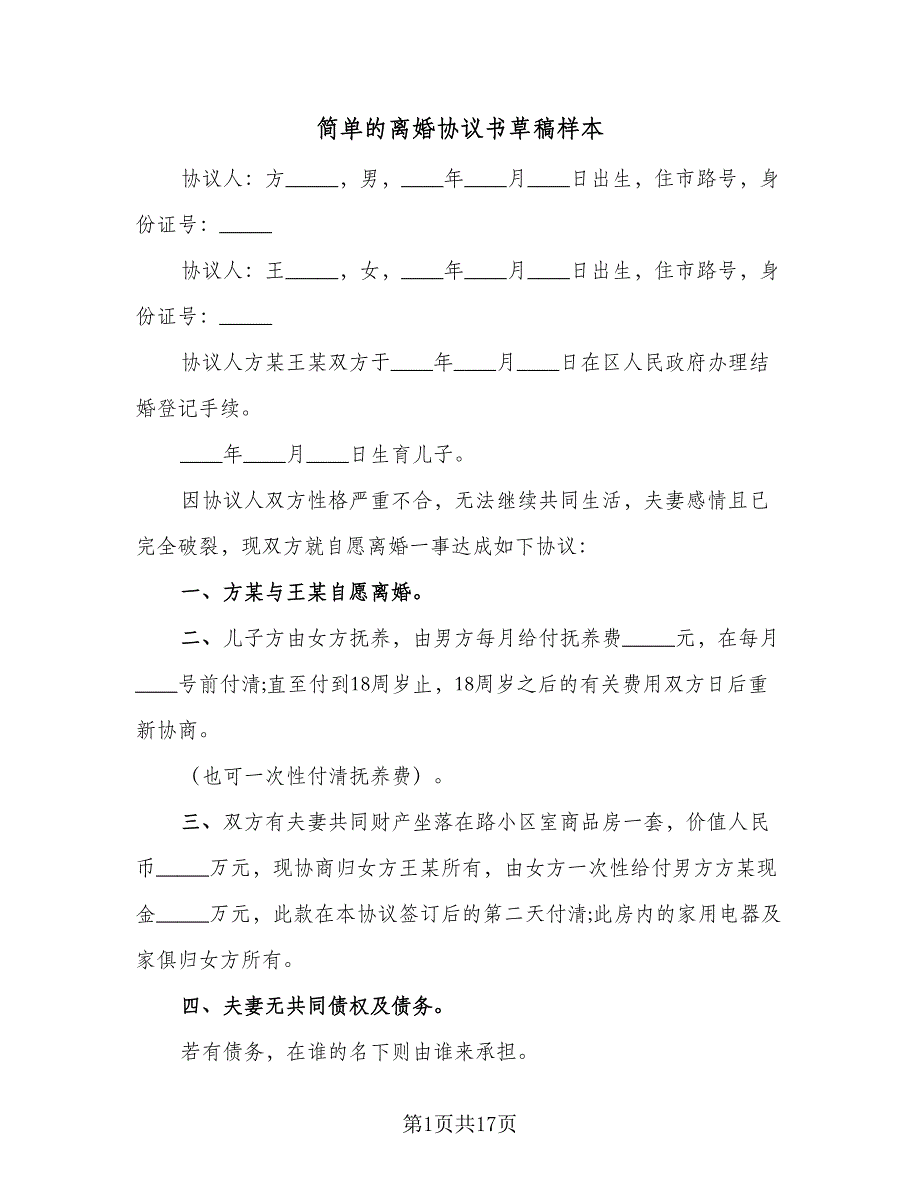 简单的离婚协议书草稿样本
协议人：方_____，男，____年____月____日出生，住市路号，身
份证号：_____
协议人：王_____，女，____年____月____日出生，住市路号，身
份证号：_____
协议人方某王某双方于____年____月____日在区人民政府办理结
婚登记手续。
____年____月____日生育儿子。
因协议人双方性格严重不合，无法继续共同生活，夫妻感情且已
完全破裂，现双方就自愿离婚一事达成如下协议：
一、方某与王某自愿离婚。
二、儿子方由女方抚养，由男方每月给付抚养费_____元，在每月
____号前付清;直至付到18周岁止，18周岁之后的有关费用双方日后重
新协商。
（也可一次性付清抚养费）。
三、双方有夫妻共同财产坐落在路小区室商品房一套，价值人民
币_____万元，现协商归女方王某所有，由女方一次性给付男方方某现
金_____万元，此款在本协议签订后的第二天付清;此房内的家用电器及
家俱归女方所有。
四、夫妻无共同债权及债务。
若有债务，在谁的名下则由谁来承担。
第1页共17页